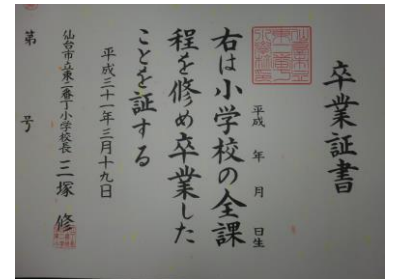 卒業証書
平成 年 月 日生
右は小学校の全課
程を修め卒業した
ことを証する
平成二十一年三月十九日
仙台市立東二番丁小学校長 三塚 修
第 号